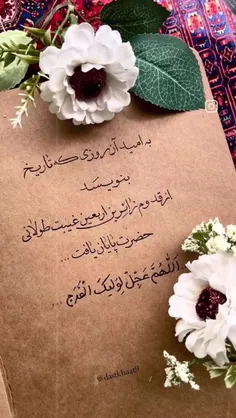 به امید آن روزی که تاریخ
بنویسد
از قدوم زائرین اربعین غیبت طولانی
حضرت پایان یافت ...
اَللّهُمَّ عَجِّل لِوَلیِّکَ الْفَرَج ...